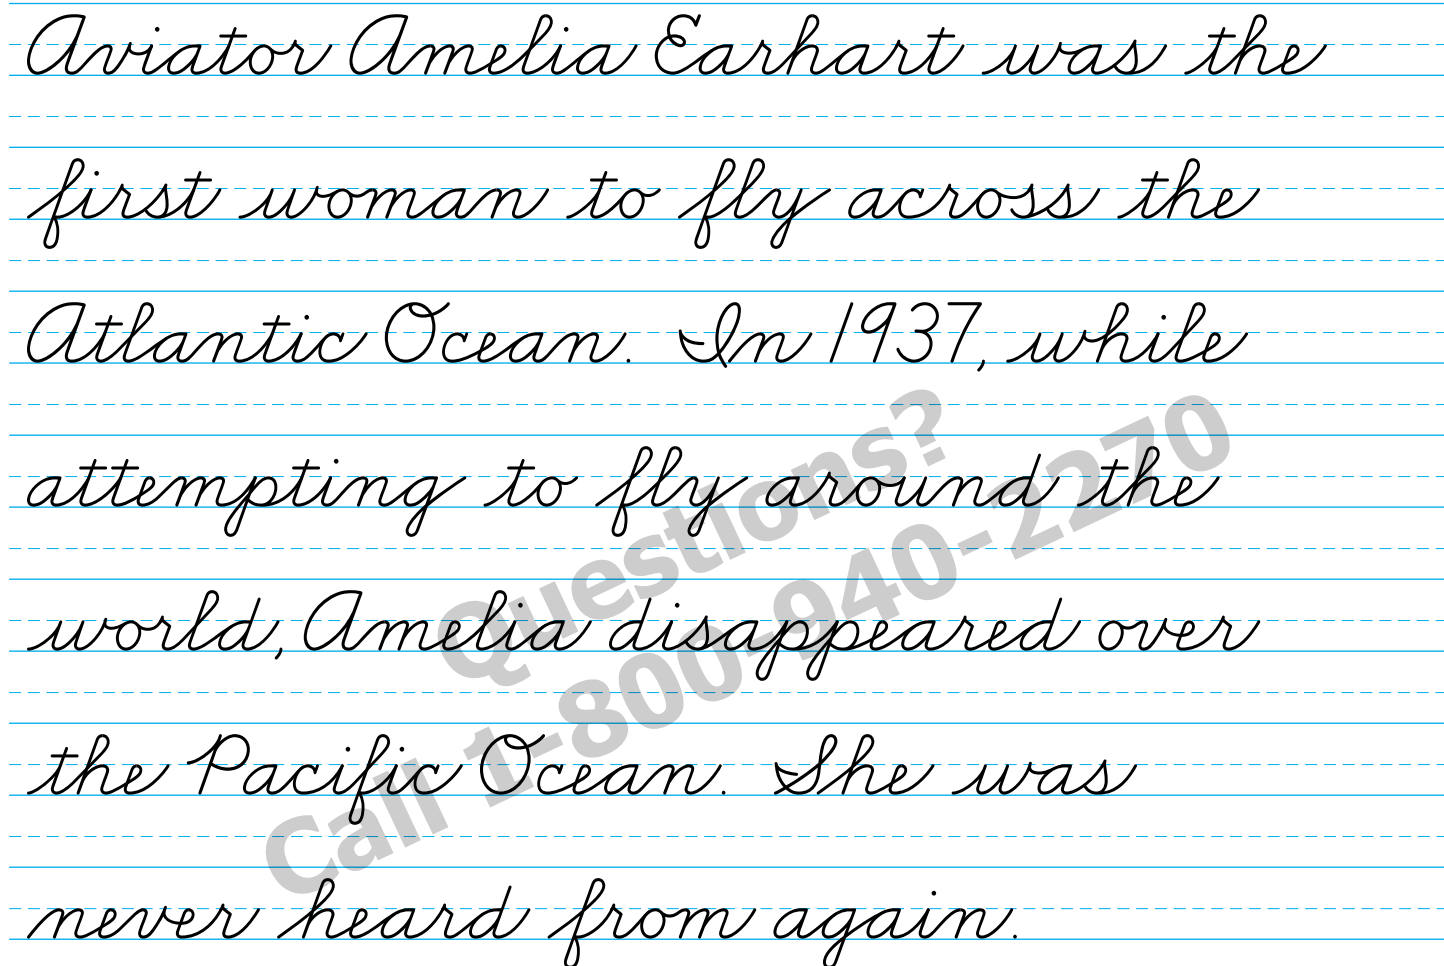 Aviator Amelia Earhart was the
first woman to fly across the
Atlantic Ocean. In 1937, while
attempting to fly around the
world, Amelia disappeared over
the Pacific Ocean. She was
never heard from again.
Questions?
Call 1-800-940-2270